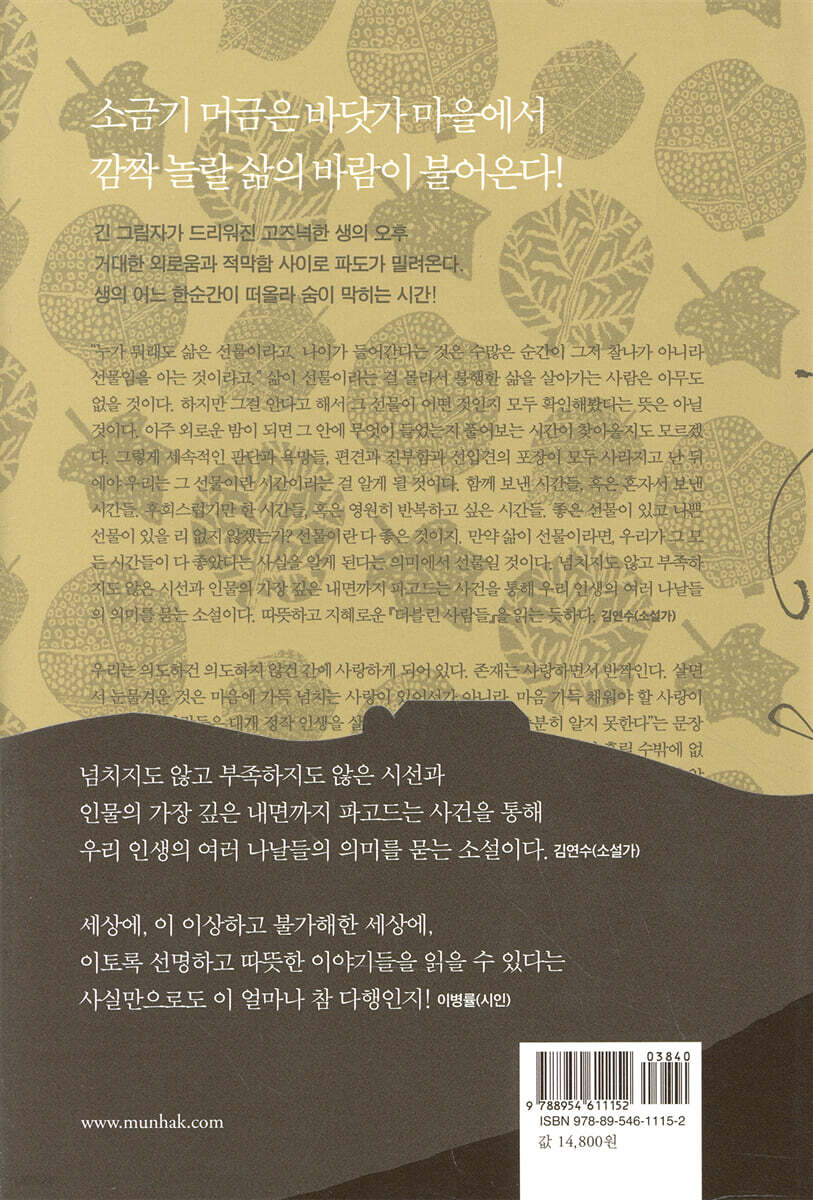 소금기 머금은 바닷가 마을에서
깜짝 놀랄 삶의 바람이 불어온다!
긴 그림자가 드리워진 고즈넉한 생의 오후
거대한 외로움과 적막함 사이로 파도가 밀려온다.
생의 어느 한순간이 떠올라 숨이 막히는 시간!
"누가 뭐래도 삶은 선물이라고, 나이가 들어간다는 것은 수많은 순간이 그저 찰나가 아니라
선물임을 아는 것이라고." 삶이 선물이라는 걸 몰라서 불행한 삶을 살아가는 사람은 아무도
없을 것이다. 하지만 그걸 안다고 해서 그 선물이 어떤 것인지 모두 확인해봤다는 뜻은 아닐
것이다. 아주 외로운 밤이 되면 그 안에 무엇이 들었는지 풀어보는 시간이 찾아올지도 모르겠
다. 그렇게 세속적인 판단과 욕망들, 편견과 진부함과 선입견의 포장이 모두 사라지고 난 뒤
에야 우리는 그 선물이란 시간이라는 걸 알게 될 것이다. 함께 보낸 시간들, 혹은 혼자서 보낸
시간들. 후회스럽기만 한 시간들, 혹은 영원히 반복하고 싶은 시간들. 좋은 선물이 있고 나쁜
선물이 있을 리 없지 않겠는가? 선물이란 다 좋은 것이지. 만약 삶이 선물이라면, 우리가 그 모
든 시간들이 다 좋았다는 사실을 알게 된다는 의미에서 선물일 것이다. 넘치지도 않고 부족하
지도 않은 시선과 인물의 가장 깊은 내면까지 파고드는 사건을 통해 우리 인생의 여러 나날들
의 의미를 묻는 소설이다. 따뜻하고 지혜로운 『더블린 사람들』을 읽는 듯하다. 김연수(소설가)
우리는 의도하건 의도하지 않건 간에 사랑하게 되어 있다. 존재는 사랑하면서 반짝인다. 살면
서 눈물겨운 것은 마음에 가득 넘치는 사랑이 있어서가 아니라, 마음 가득 채워야 할 사랑이
대개 정작 인생을 살 분히 알지 못한다"는 문장
수밖에 없
넘치지도 않고 부족하지도 않은 시선과
인물의 가장 깊은 내면까지 파고드는 사건을 통해
우리 인생의 여러 나날들의 의미를 묻는 소설이다. 김연수(소설가)
세상에, 이 이상하고 불가해한 세상에,
이토록 선명하고 따뜻한 이야기들을 읽을 수 있다는
사실만으로도 이 얼마나 참 다행인지! 이병률(시인)
03840
9 788954 611152
ISBN 978-89-546-1115-2
값 14,800원
www.munhak.com